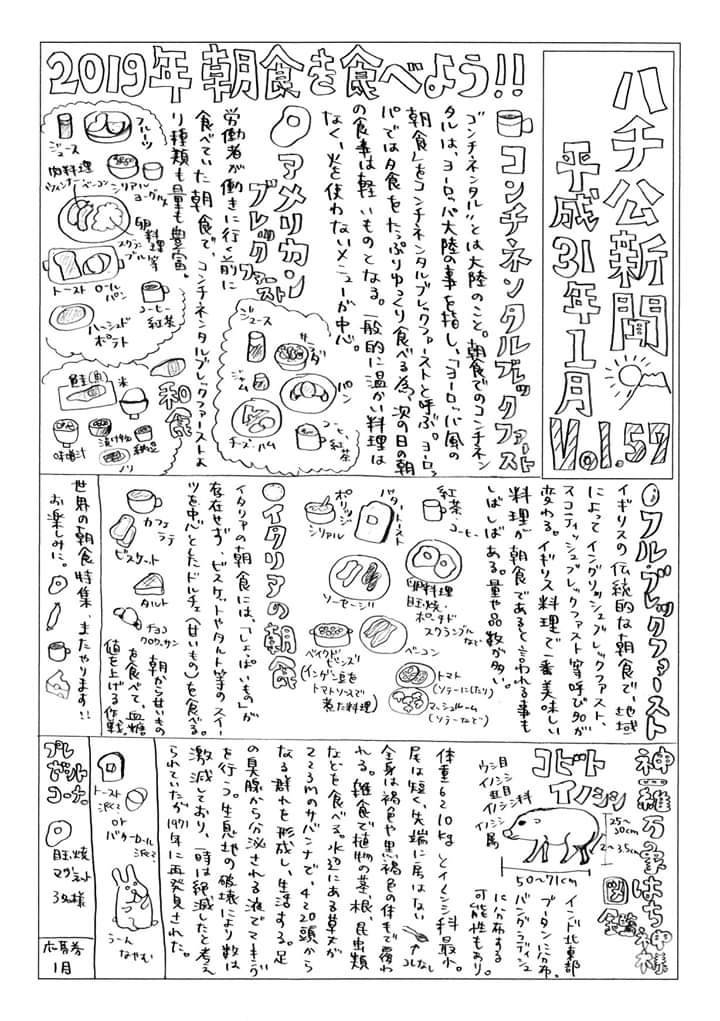 ハチ公新聞
平成31年1月
Vol.57
2019年 朝食を食べよう!!
コンチネンタルブレックファースト
コンチネンタル"とは大陸のこと。朝食でのコンチネン
タルは、ヨーロッパ大陸の事を指し、「ヨーロッパ風の
朝食」をコンチネンタルブレックファーストと呼ぶ。ヨーロッ
パでは夕食をたっぷりゆっくり食べる為、次の日の朝
の食事は軽いものとなる。一般的に温かい料理は
なく、火を使わないメニューが中心。
ジュース
サラダ
ジャム
パン
チーズ・ハム
コーヒー
紅茶
アメリカン
ブレックファースト
労働者が働きに行く前に
食べていた朝食で、コンチネンタルブレックファーストよ
り種類も量も豊富。
フルーツ
ジュース
シリアル
ヨーグルト
肉料理
ウィンナー・ベーコン
卵料理
スクランブル等
トースト
ロールパン
コーヒー
紅茶
ハッシュド
ポテト
和食
鮭(魚)
米
味噌汁
漬け物
納豆
ノリ
フル・ブレックファースト
イギリスの伝統的な朝食で、地域
によってイングリッシュブレックファースト、
スコティッシュブレックファースト等呼び名が
変わる。イギリス料理で一番美味しい
料理が朝食であると言われる事も
しばしばある。量や品数が多い。
紅茶・コーヒー
バタートースト
ポリッジ
シリアル
卵料理
目玉焼・
ポーチド
スクランブル
など
ソーセージ
ベーコン
ベイクド
ビーンズ
(インゲン豆を
トマトソースで
煮た料理)
トマト
(ソテーにしたり)
マッシュルーム
(ソテーなど)
イタリアの朝食
イタリアの朝食には、「しょっぱいもの」が
存在せず、ビスケットやタルト等のスイー
ツを中心としたドルチェ(甘いもの)を食べる。
カフェ
ラテ
ビスケット
タルト
チョコ
クロワッサン
朝から甘いもの
を食べて、血糖
値を上げる作戦。
世界の朝食特集、またやります!!
お楽しみに。
神羅万象はち神様
図鑑
コビト
イノシシ
ウシ目
イノシシ
亜目
イノシシ科
イノシシ
属
25〜
30cm
2〜3.5cm
50〜71cm
インド北東部
ブータンに分布。
バングラディシュ
に分布する
可能性もあり。
体重6〜10kgとイノシシ科最小。
尾は短く、先端に房はない
コレなし
全身は褐色や黒褐色の体毛で覆わ
れる。雑食で植物の茎根、昆虫類
などを食べる。水辺にある草丈が
2〜3mのサバンナで、4〜20頭から
なる群れを形成し、生活する。足
の臭腺から分泌される液でマーキング
を行う。生息地の破壊により数は
激減しており、一時は絶滅したと考え
られていたが1971年に再発見された。
トースト
派?
or
バターロール
派?
うーん
なやむ
プレ
ゼント
コーナー
目玉焼
マグネット
3名様
応募券
1月